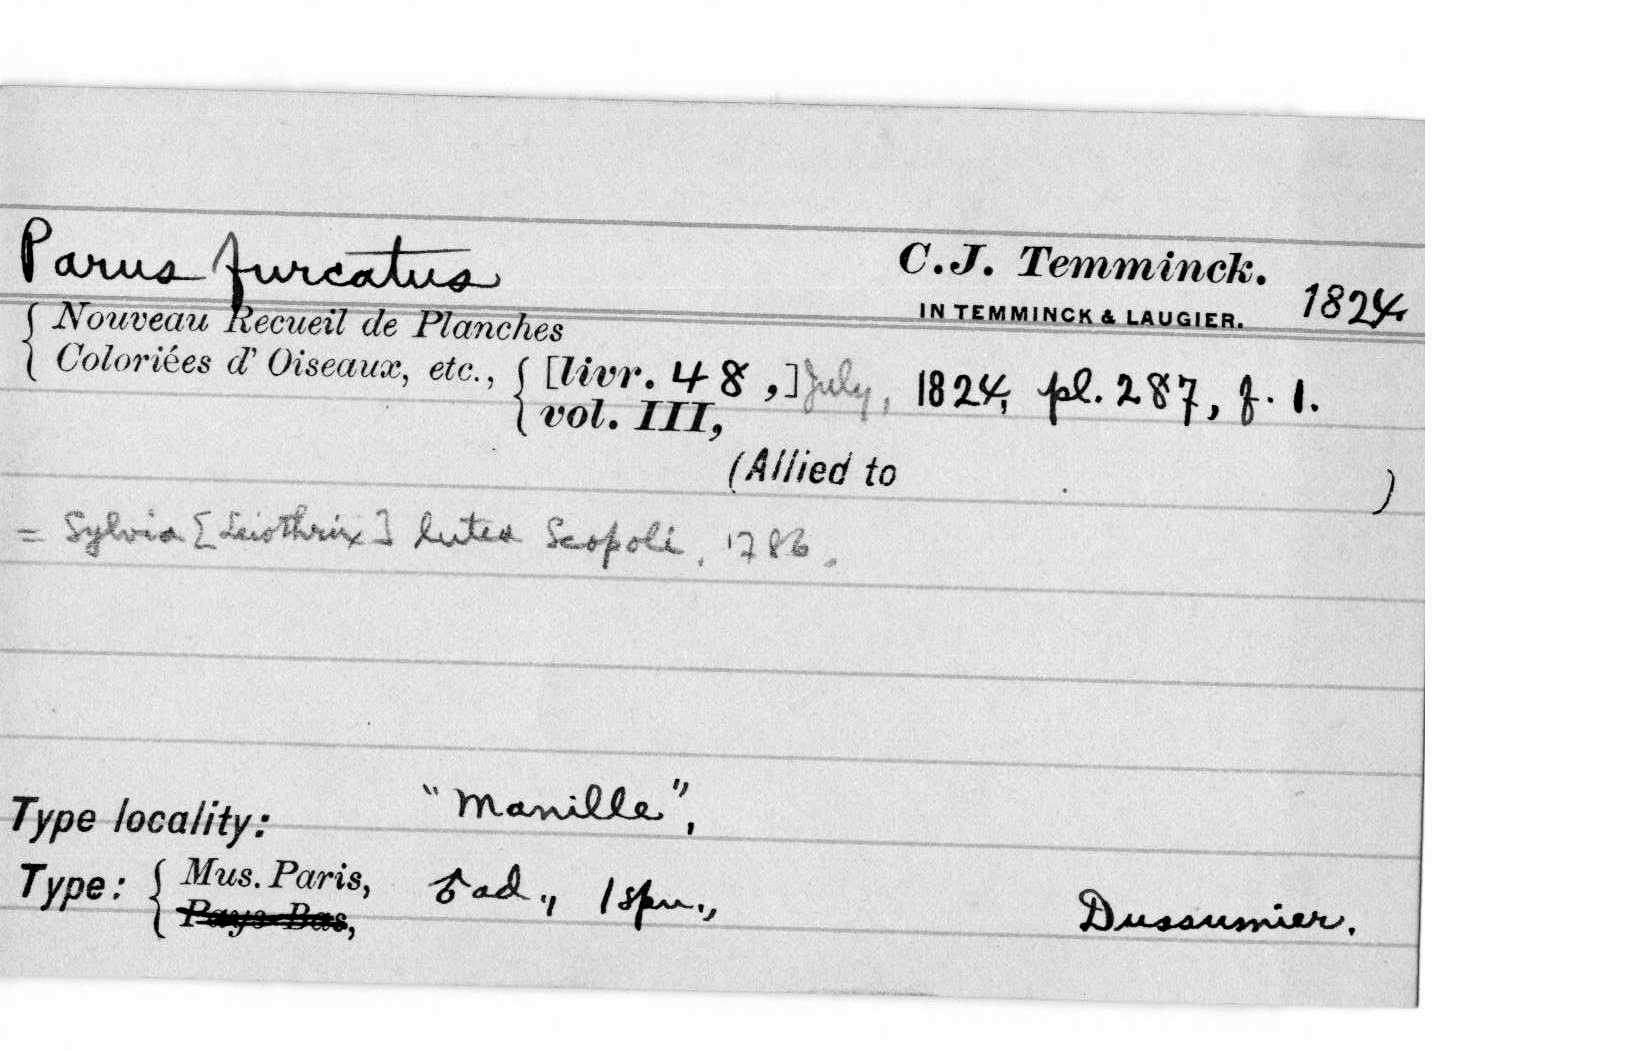 Parus furcatus C.J. Temminck.
IN TEMMINCK & LAUGIER. 1824.
{ Nouveau Recueil de Planches
Coloriées d'Oiseaux, etc., { [livr. 48,] July, 1824, pl. 287, f. 1.
vol. III,
(Allied to )
= Sylvia [Leiothrix] lutea Scopoli, 1786.
Type locality: "Manille",
Type: { Mus. Paris, ad., 1 spm.,
Pays-Bas, Dussumier.